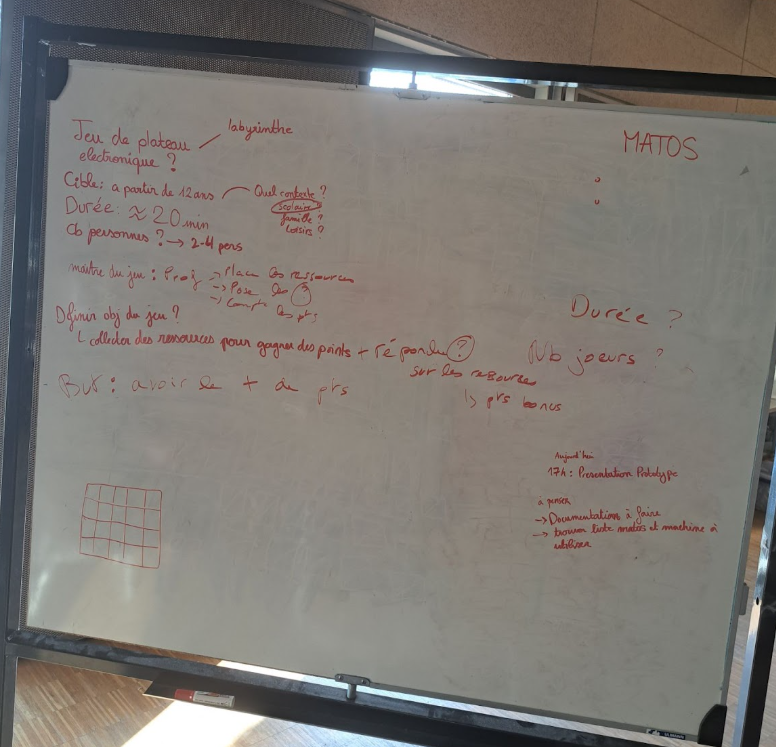 Jeu de plateau
labyrinthe
electronique ?
Cible : a partir de 12 ans
Quel contexte ?
scolaire ?
famille ?
loisirs ?
Durée : ≈ 20 min
Cb personnes ? → 2-4 pers
maitre du jeu : Prof → Place les ressources
→ Pose les ?
→ Compte les pts
Définir obj du jeu ?
collecter des ressources pour gagner des points + répondre ?
sur les ressources
↳ pts bonus
- But : avoir le + de pts
MATOS
Durée ?
Nb joeurs ?
Aujourd'hui
17h : Presentation Prototype
à penser
→ Documentations à faire
→ trouver liste matos et machine à
utiliser